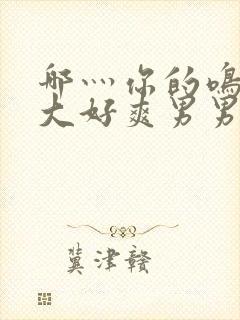 那灬你的鸣
大好爽男男
冀津赣